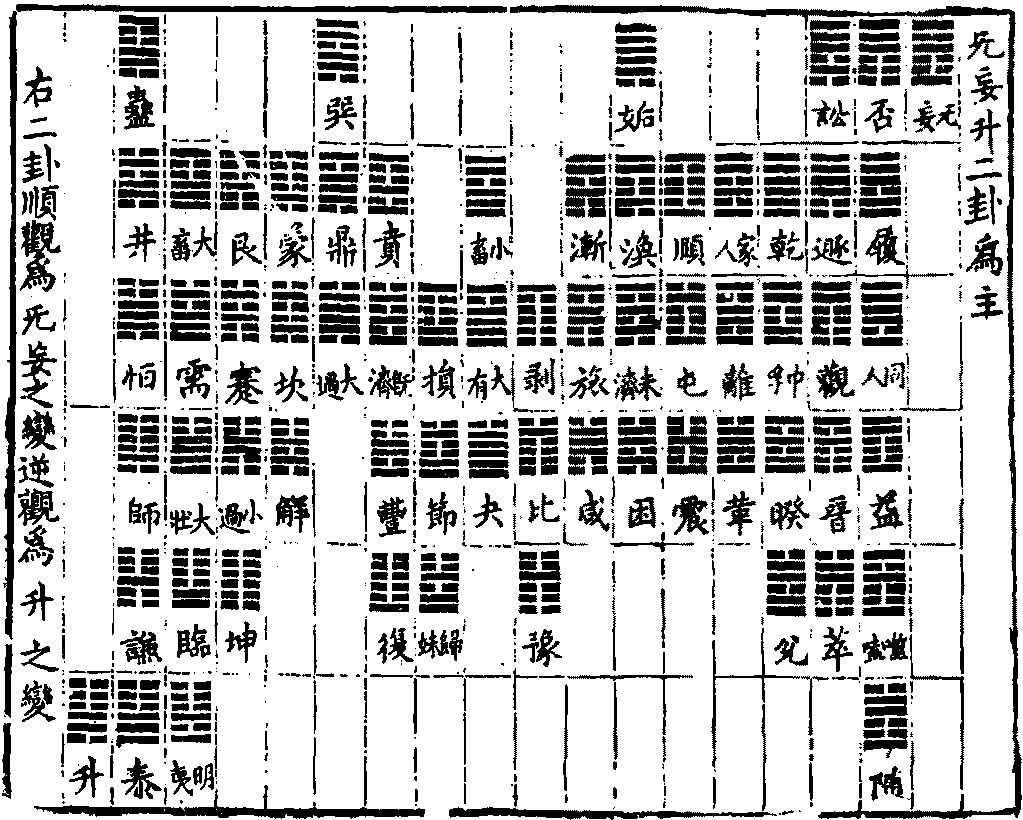 无妄升二卦為主
无妄 否 訟 姤 巽 蠱
履 遯 乾 家人 頤 渙 漸 小畜 賁 鼎 蒙 艮 大畜 井
同人 觀 中孚 離 屯 未濟 旅 剝 大有 損 既濟 大過 坎 蹇 需 恒
益 晉 睽 革 震 困 咸 比 夬 節 豐 解 小過 大壯 師
噬嗑 萃 兌 豫 歸妹 復 坤 臨 謙
隨 明夷 泰 升
右二卦順觀為无妄之變逆觀為升之變